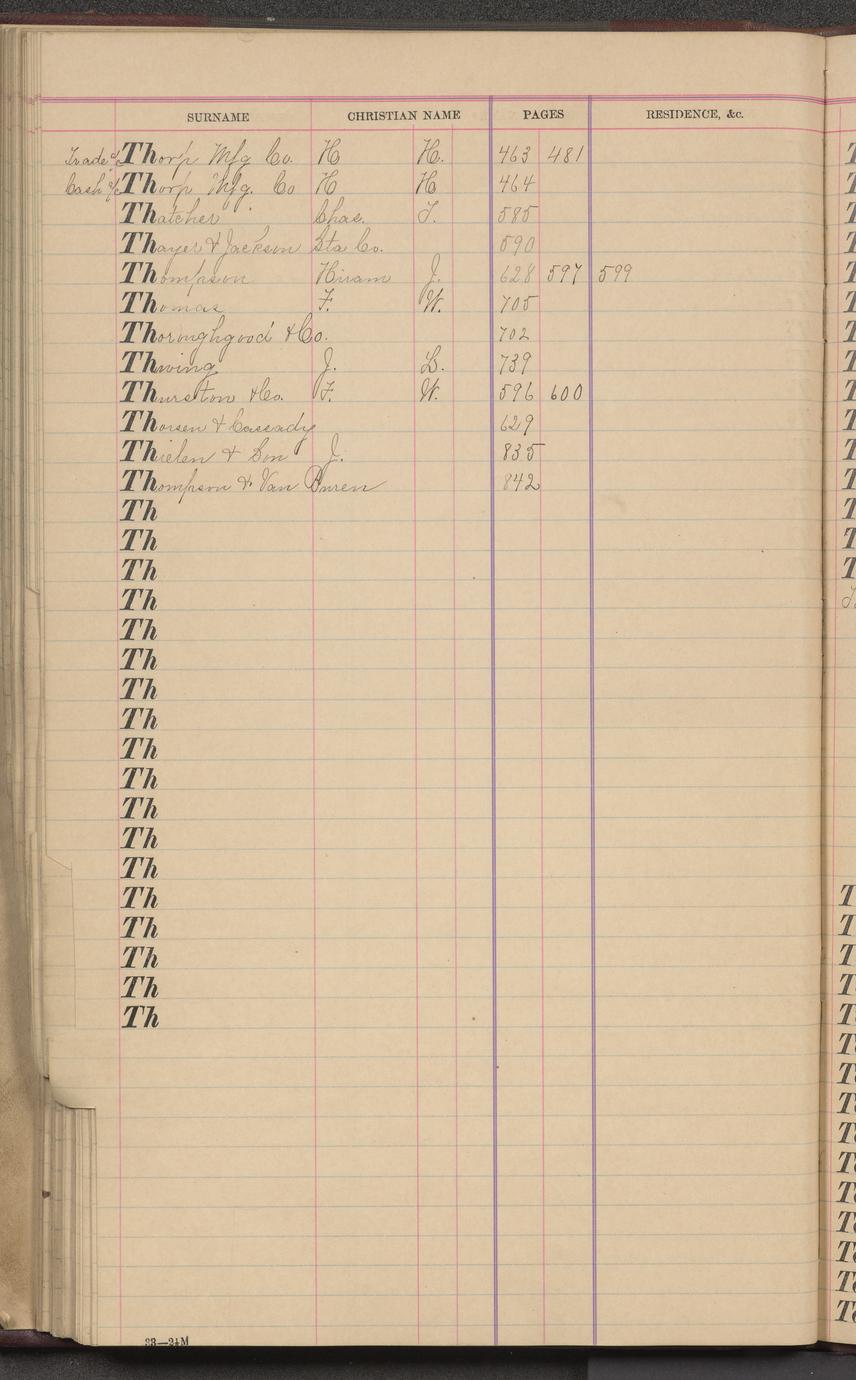 SURNAME CHRISTIAN NAME PAGES RESIDENCE, &c.
Trade a/c Thorp Mfg Co. H H. 463 481
Cash a/c Thorp Mfg. Co H H 464
Thatcher Chas. T. 585
Thayer & Jackson Sta Co. 590
Thompson Hiram J. 628 597 599
Thomas F. W. 705
Thoroughgood & Co. 702
Thwing J. L. 739
Thurston & Co. F. W. 596 600
Thorsen & Cassady 629
Thielen & Son J. 835
Thompson & Van Buren 842
Th
Th
Th
Th
Th
Th
Th
Th
Th
Th
Th
Th
Th
Th
Th
Th
Th
Th
33—2½M